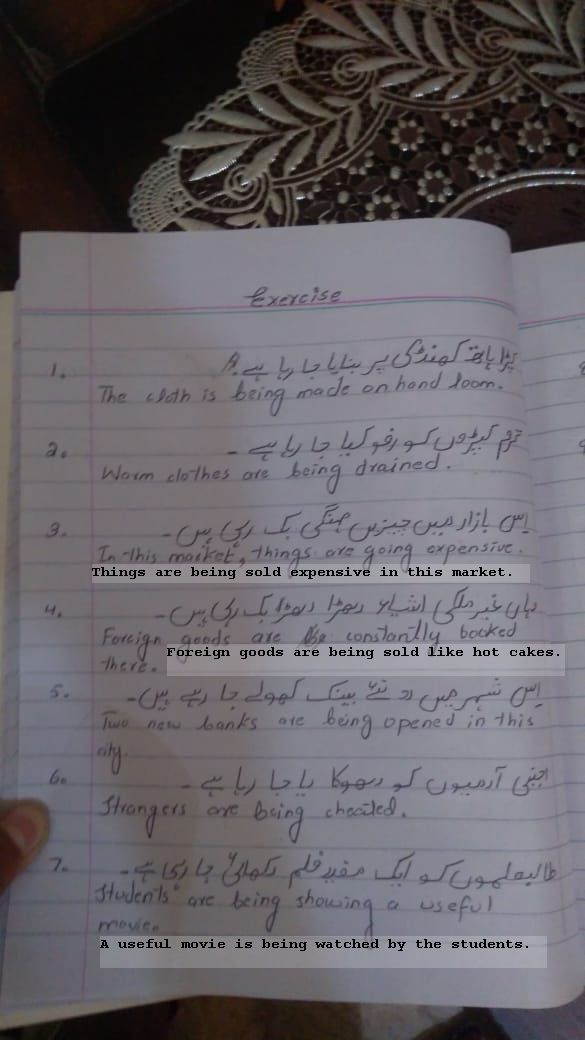 Exercise
1. کپڑا ہاتھ کھنڈی پر بنایا جا رہا ہے۔
The cloth is being made on hand loom.
2. گرم کپڑوں کو رفو کیا جا رہا ہے۔
Warm clothes are being drained.
3. اِس بازار میں چیزیں مہنگی بک رہی ہیں۔
In this market, things are going expensive.
Things are being sold expensive in this market.
4. وہاں غیر ملکی اشیاء دھڑا دھڑا بک رہی ہیں۔
Foreign goods are constantly bocked
there. Foreign goods are being sold like hot cakes.
5. اِس شہر میں دو نئے بینک کھولے جا رہے ہیں۔
Two new banks are being opened in this
city.
6. اجنبی آدمیوں کو دھوکا دیا جا رہا ہے۔
Strangers are being cheated.
7. طالبعلموں کو ایک مفید فلم دکھائی جا رہی ہے۔
Students are being showing a useful
movie.
A useful movie is being watched by the students.